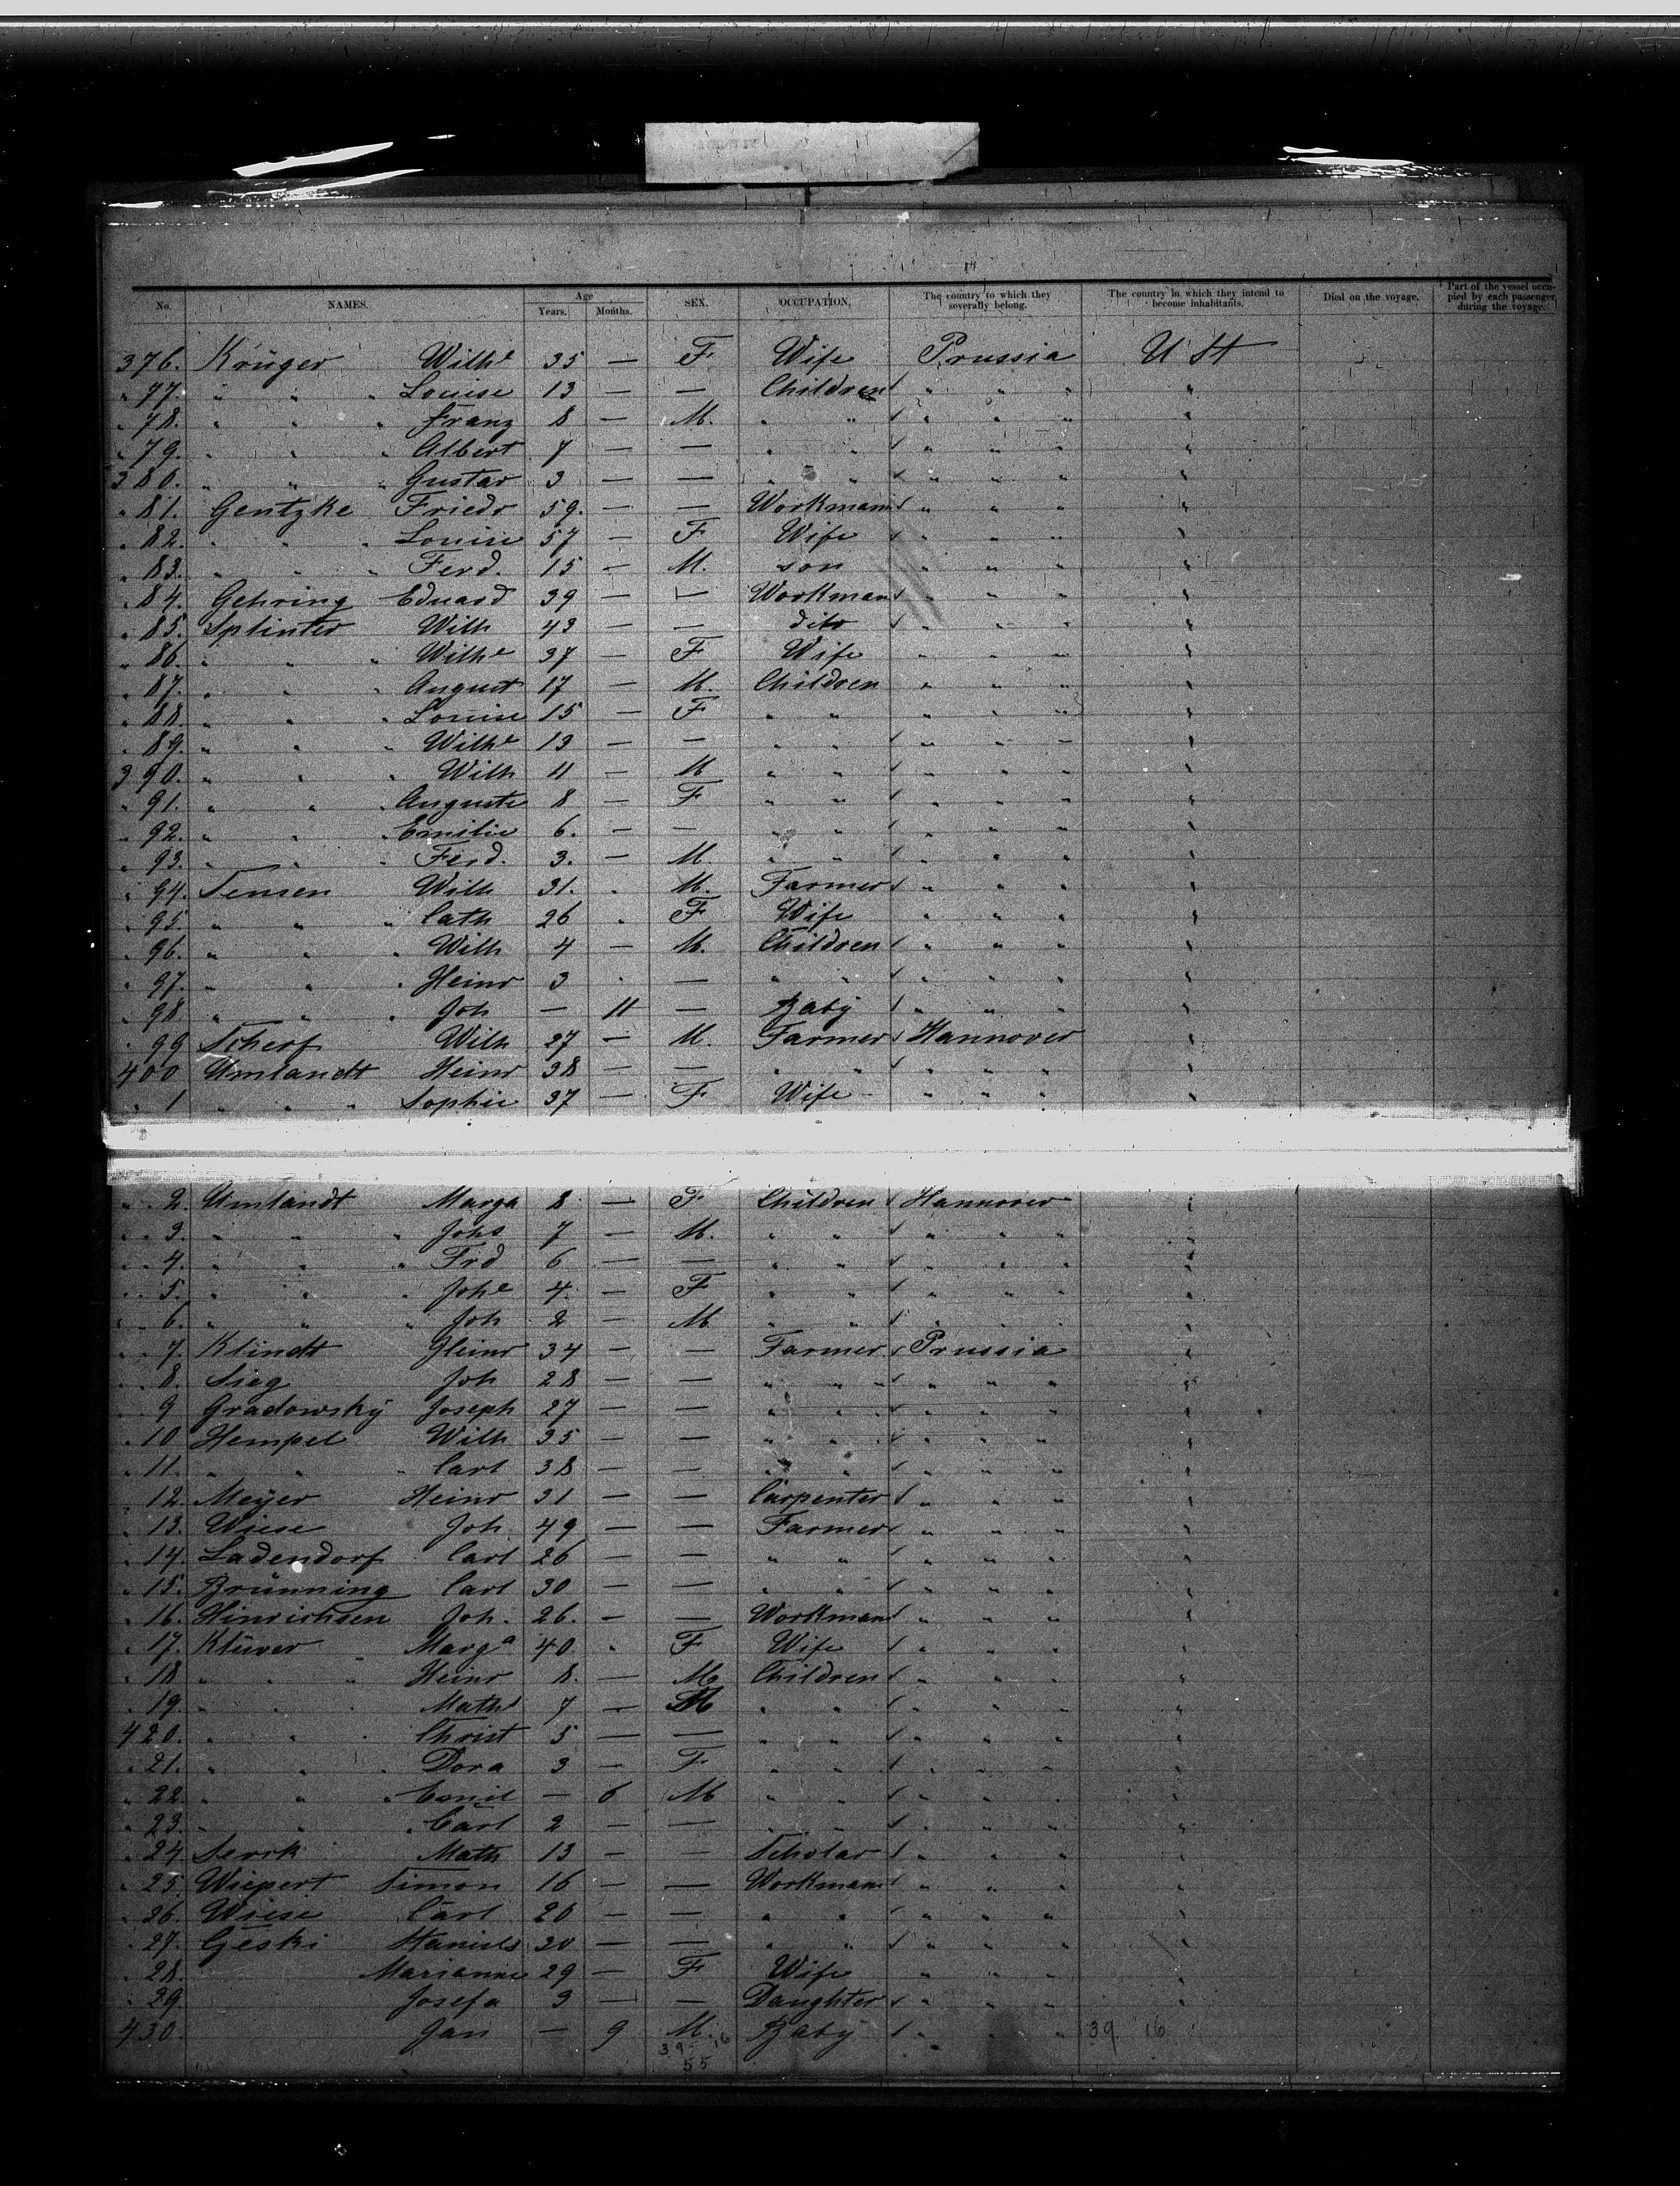 No. NAMES. Age Years. Months. SEX. OCCUPATION, The country to which they severally belong. The country in which they intend to become inhabitants. Died on the voyage. Part of the vessel occupied by each passenger during the voyage.
376. Krüger Wilhe 35 — F Wife Prussia U St
" 77. " " " Louise 13 — — Children " " " "
" 78. " " " Franz 8 — M. " " " " " "
" 79. " " " Albert 7 — — " " " " " "
380. " " " Gustav 3 — — " " " " " "
" 81. Gentzke Friedr 59. — — Workman " " " "
" 82. " " " Louise 57 — F Wife " " " "
" 83. " " " Ferd. 15 — M. son " " " "
" 84. Gehring Eduard 39 — — Workman " " " "
" 85. Splinter Wilh 43 — — dito " " " "
" 86. " " " Wilhe 37 — F Wife " " " "
" 87. " " " August 17 — M. Children " " " "
" 88. " " " Louise 15 — F " " " " " "
" 89. " " " Wilhe 13 — — " " " " " "
390. " " " Wilh 11 — M " " " " " "
" 91. " " " Auguste 8 — F " " " " " "
" 92. " " " Emilie 6. — — " " " " " "
" 93. " " " Ferd. 3. — M. " " " " " "
" 94. Jensen Wilh 31. " M. Farmer " " " "
" 95. " " " Cath 26 " F Wife " " " "
" 96. " " " Wilh 4 — M. Children " " " "
" 97. " " " Heinr 3 " — " " " " " "
" 98 " " " Joh — 11 — Baby " " " "
" 99 Scherf Wilh 27 — M. Farmer Hannover "
400 Umlandt Heinr 38 — — " " " " " "
" 1 " " " Sophie 37 — F Wife " " " "
" 2. Umlandt Marga 8 — F Children Hannover "
" 3. " " " Johs 7 — M. " " " " " "
" 4. " " " Frd 6 — — " " " " " "
" 5. " " " Johe 4. — F " " " " " "
" 6. " " " Joh 2 — M " " " " " "
" 7. Klindt Heinr 34 — — Farmer Prussia "
" 8. Sieg Joh 28 — — " " " " " "
" 9 Gradowsky Joseph 27 — — " " " " " "
" 10 Hempel Wilh 35 — — " " " " " "
" 11. " " " Carl 38 — — " " " " " "
" 12. Meyer Heinr 31 — — Carpenter " " " "
" 13. Wiese Joh 49 — — Farmer " " " "
" 14. Ladendorf Carl 26 — — " " " " " "
" 15. Brünning Carl 30 — — " " " " " "
" 16. Hinrichsen Joh. 26. — — Workman " " " "
" 17. Klüver Marga 40 " F Wife " " " "
" 18 " " " Heinr 8. — M Children " " " "
" 19. " " " Math 7 — M " " " " " "
420. " " " Christ 5 — — " " " " " "
" 21. " " " Dora 3 — F " " " " " "
" 22. " " " Emil — 6 M " " " " " "
" 23. " " " Carl 2 — — " " " " " "
" 24 Math 13 — — Scholar " " " "
" 25. Wiepert Simon 16 — — Workman " " " "
" 26. Wiese Carl 20 — — " " " " " "
" 27. Geski Stanisls 30 — — " " " " " "
" 28. Marianne 29 — F Wife " " " "
" 29. Josefa 3 — — Daughter " " " "
430. Jan — 9 M. Baby " " " 39 16
39 16
55